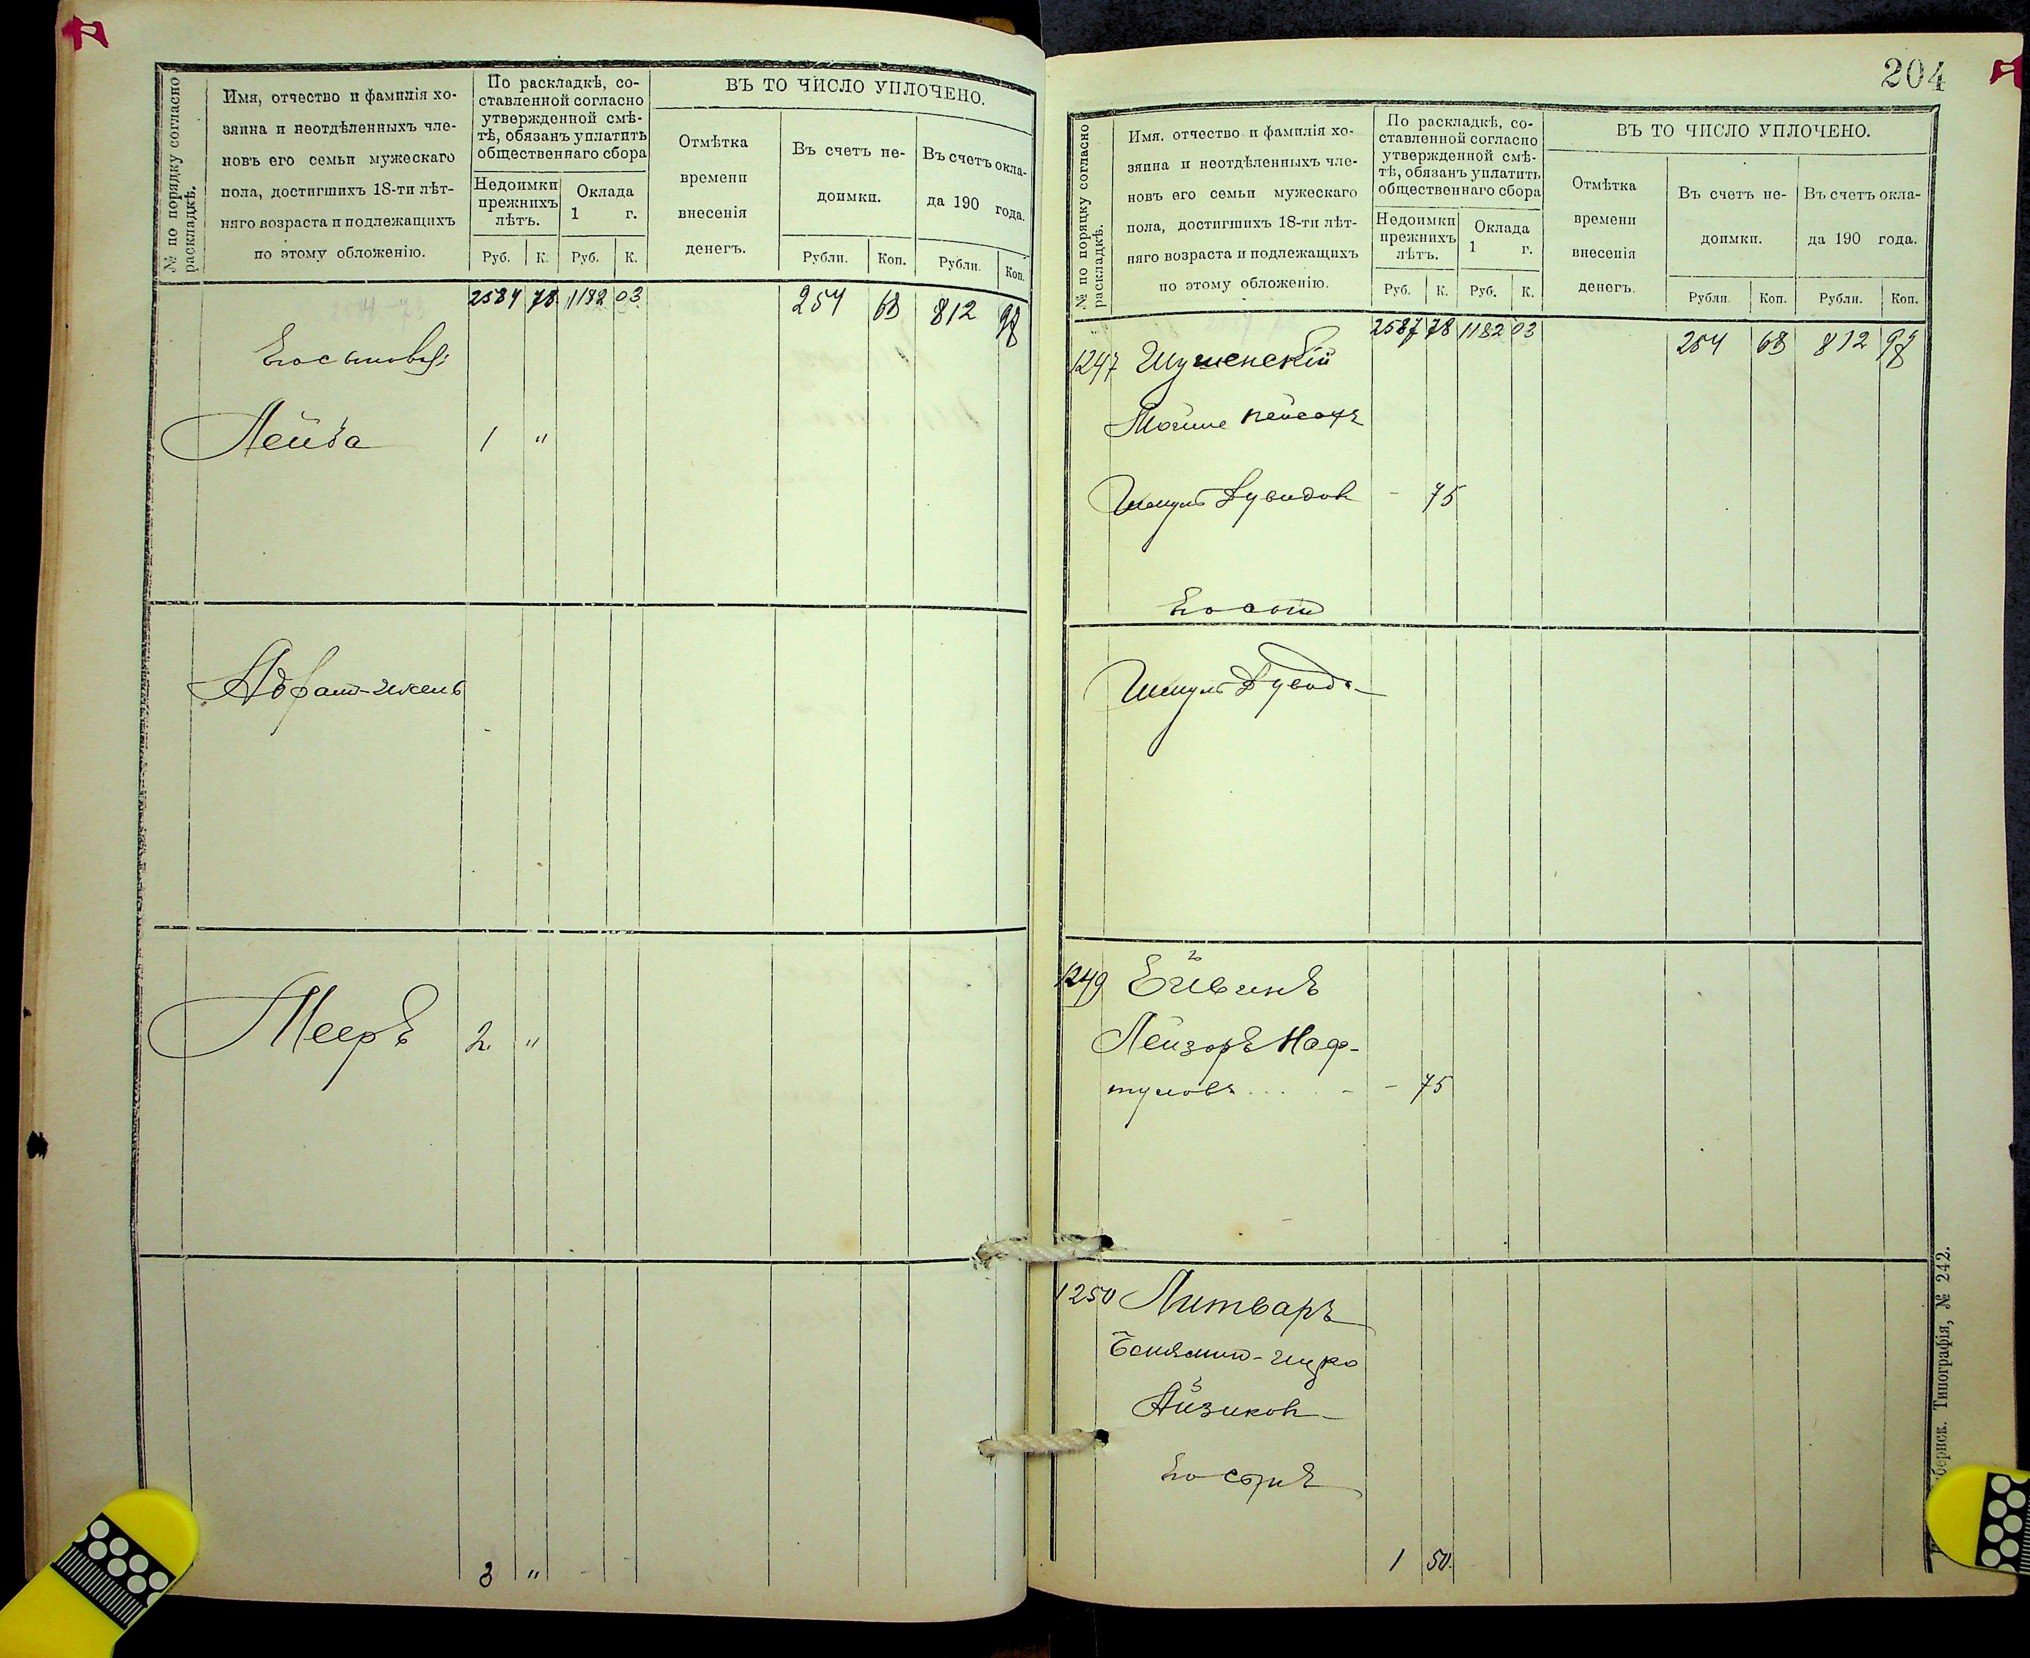 № по порядку согласно раскладкѣ.
Имя, отчество и фамилія хо-
зяина и неотдѣленныхъ чле-
новъ его семьи мужескаго
пола, достигшихъ 18-ти лѣт-
няго возраста и подлежащихъ
по этому обложенію.
По раскладкѣ, со-
ставленной согласно
утвержденной смѣ-
тѣ, обязанъ уплатить
общественнаго сбора
Недоимки
прежнихъ
лѣтъ.
Оклада
1 г.
Руб. К. Руб. К.
ВЪ ТО ЧИСЛО УПЛОЧЕНО.
Отмѣтка
времени
внесенія
денегъ.
Въ счетъ не-
доимки.
Въ счетъ окла-
да 190 года.
Рубли. Коп. Рубли. Коп.
2584 78 1182 03 254 68 812 98
Его сыновья:
Лейба 1 "
Абрам-
Мееръ 2 "
3 "
204
№ по порядку согласно раскладкѣ.
Имя, отчество и фамилія хо-
зяина и неотдѣленныхъ чле-
новъ его семьи мужескаго
пола, достигшихъ 18-ти лѣт-
няго возраста и подлежащихъ
по этому обложенію.
По раскладкѣ, со-
ставленной согласно
утвержденной смѣ-
тѣ, обязанъ уплатить
общественнаго сбора
Недоимки
прежнихъ
лѣтъ.
Оклада
1 г.
Руб. К. Руб. К.
ВЪ ТО ЧИСЛО УПЛОЧЕНО.
Отмѣтка
времени
внесенія
денегъ.
Въ счетъ не-
доимки.
Въ счетъ окла-
да 190 года.
Рубли. Коп. Рубли. Коп.
2587 78 1182 03 254 68 812 98
1247 Шушенскій
Мойше Пейсахъ
Шмуль Дувидов - 75
Шмуль Дувид
1249
Лейзоръ Наф-
туловъ - - 75
1250 Литваръ
Айзиков
1 50
Типографія, № 242.